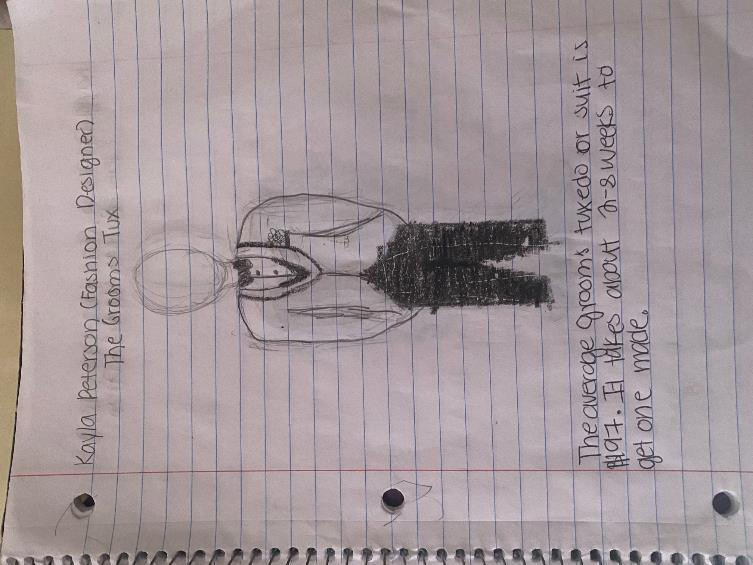 Kayla Peterson (Fashion Designer)
The Grooms Tux
The average grooms tuxedo or suit is
$197. It takes about 2-8 weeks to
get one made.